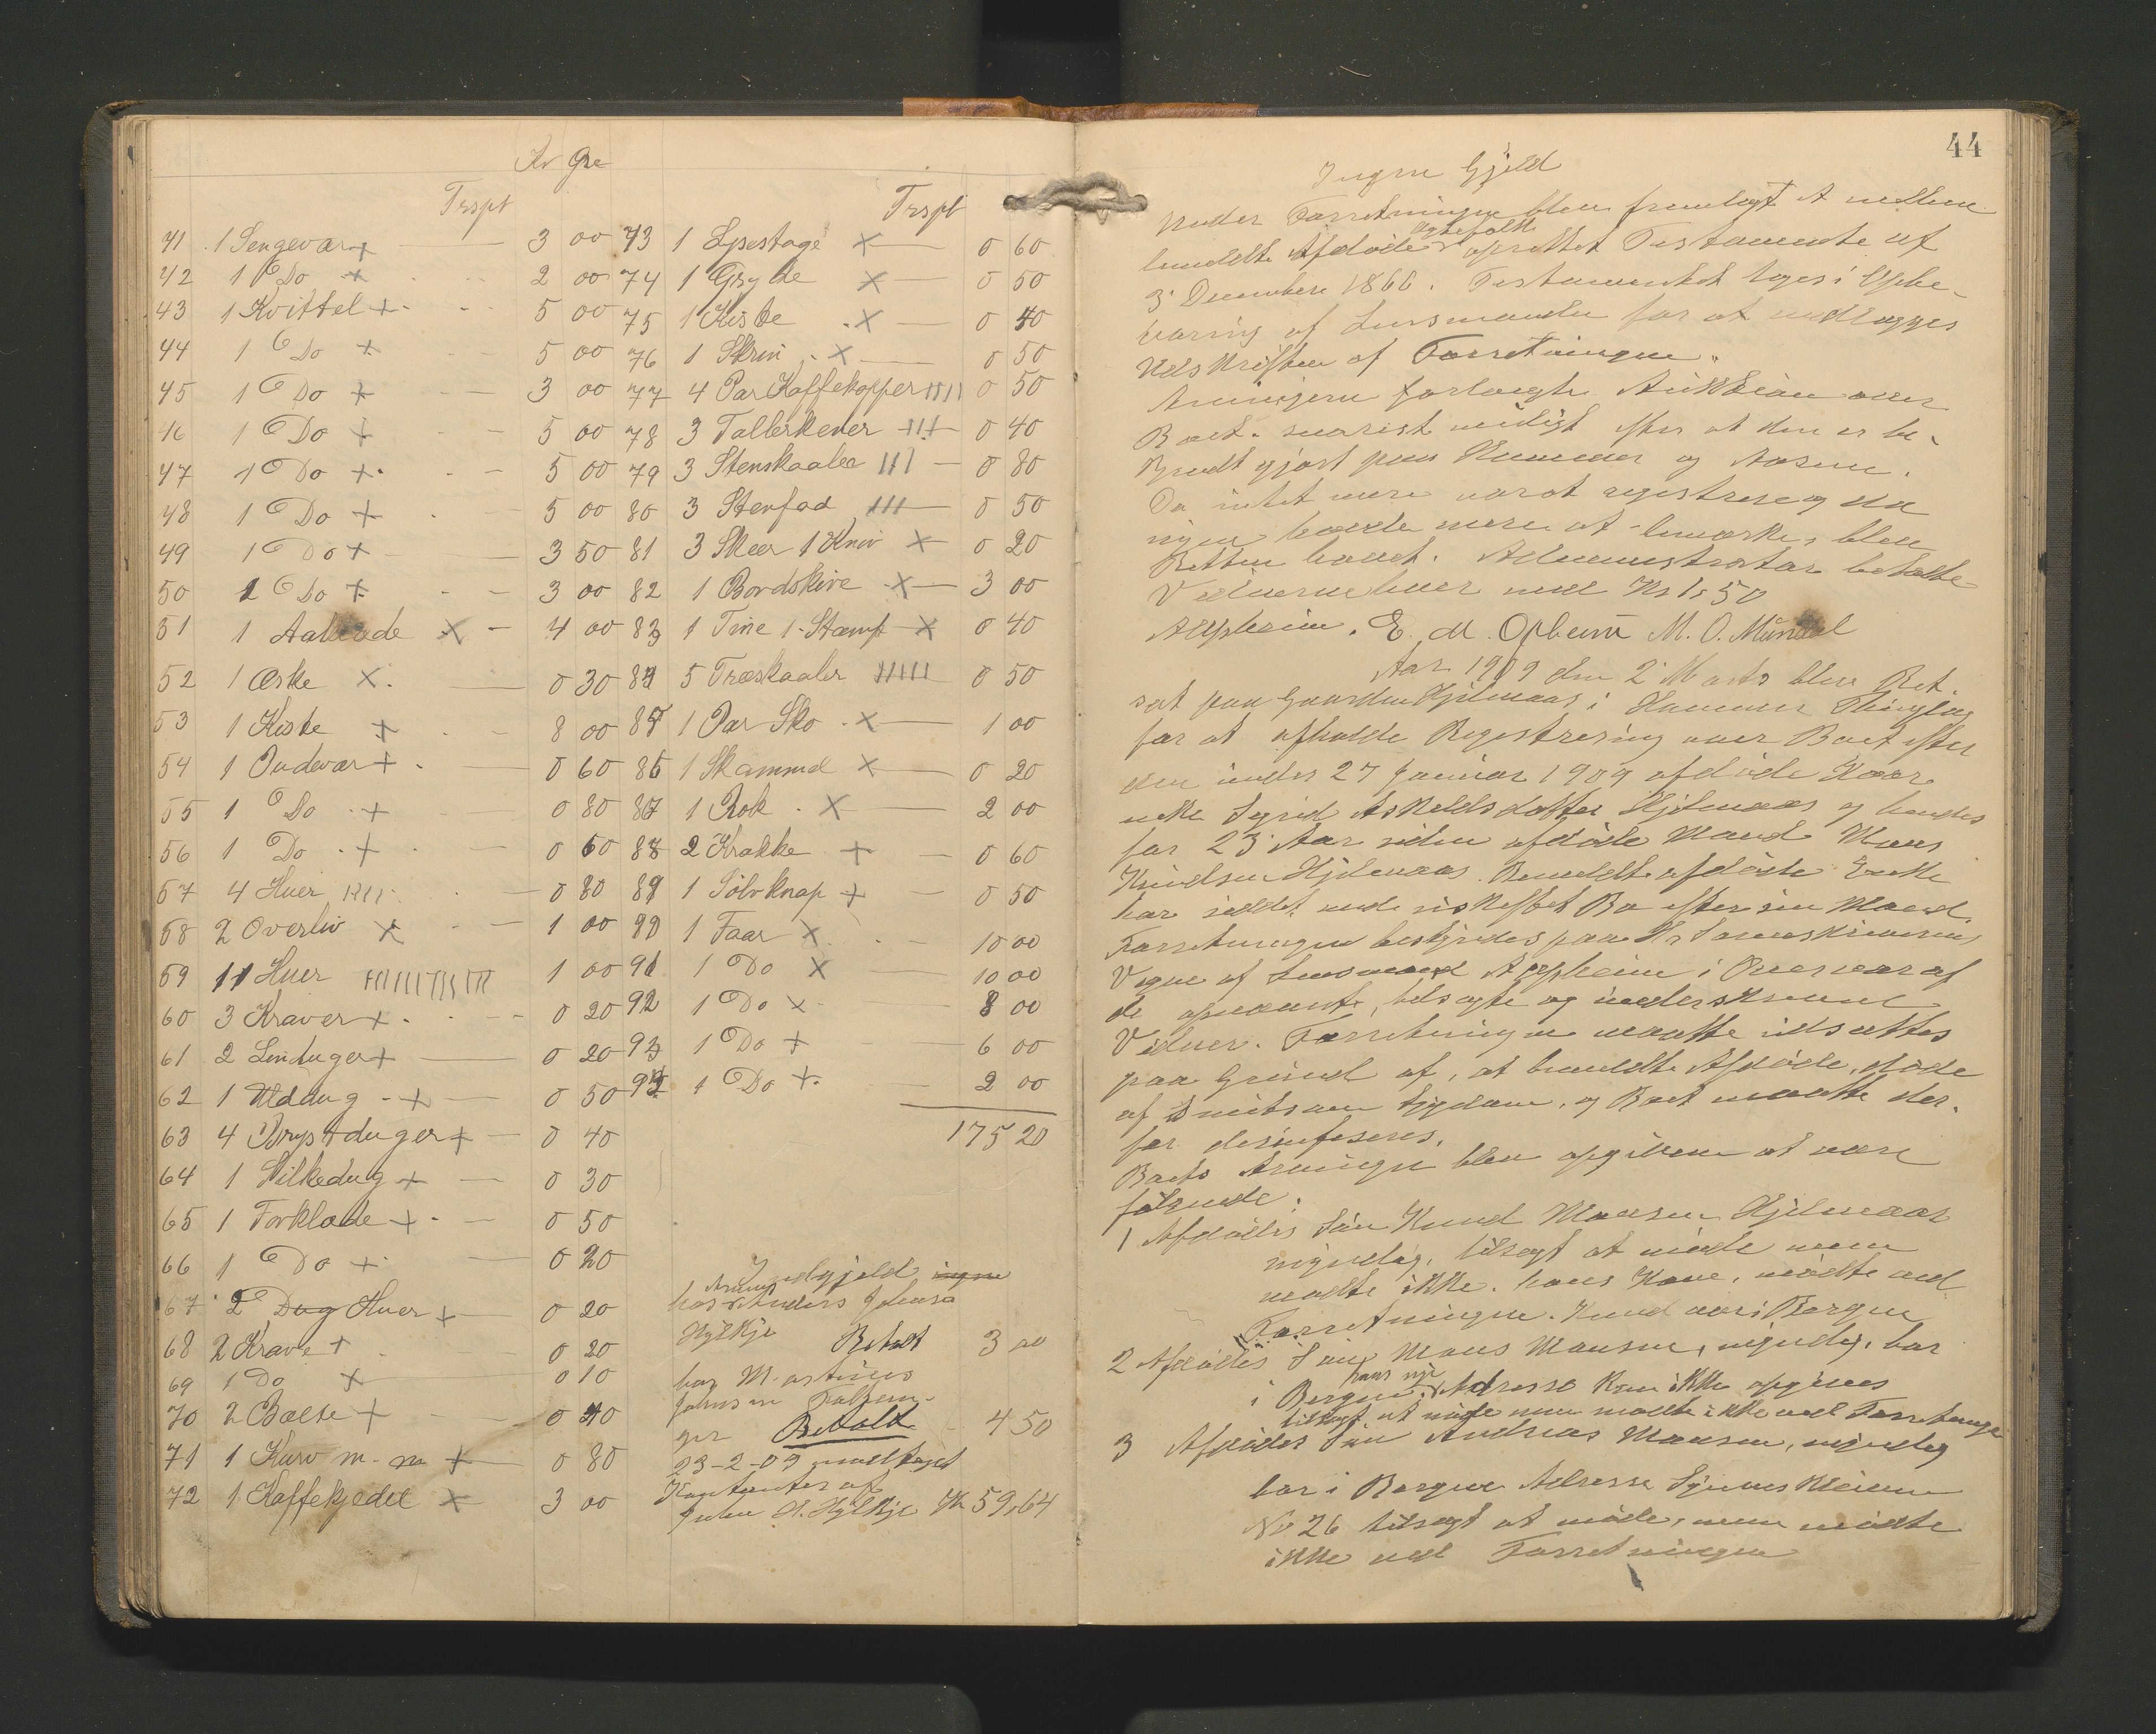 Kr Øre
Trspt
41 1 Sengevar + 3 00
42 1 Do + 2 00
43 1 Kvittel + 5 00
44 1 Do + 5 00
45 1 Do + 3 00
46 1 Do + 5 00
47 1 Do + 5 00
48 1 Do + 5 00
49 1 Do + 3 50
50 1 Do + 3 00
51 1 Aaklæde X 4 00
52 1 Æske X 0 30
53 1 Kiste + 8 00
54 1 Pudevar + 0 60
55 1 Do + 0 80
56 1 Do + 0 60
57 4 Huer IIII 0 80
58 2 Overliv X 1 00
59 11 Huer IIIIIIIIIII 1 00
60 3 Kraver + 0 20
61 2 Linduger + 0 20
62 1 Ulddug + 0 50
63 4 Brystduger + 0 40
64 1 Silkedug + 0 30
65 1 Forklæde + 0 50
66 1 Do + 0 20
67 2 Dug Huer + 0 20
68 2 Krave + 0 20
69 1 Do X 0 10
70 2 Bælte + 0 40
71 1 Kurv m. m + 0 80
72 1 Kaffekjedel X 3 00
Trspt
73 1 Lysestage X 0 60
74 1 Gryde X 0 50
75 1 Kiste X 0 40
76 1 Skrin X 0 50
77 4 Par Kaffekopper IIII 0 50
78 3 Tallerkener III 0 40
79 3 Stenskaaler III 0 80
80 3 Stenfad III 0 50
81 3 Skeer 1 Kniv X 0 20
82 1 Bordskive X 3 00
83 1 Tine 1 Stamp X 0 40
84 5 Træskaaler IIIII 0 50
85 1 Par Sko X 1 00
86 1 Skammel X 0 20
87 1 Rok X 2 00
88 2 Krakke + 0 60
89 1 Sølvknap + 0 50
90 1 Faar X 10 00
91 1 Do X 10 00
92 1 Do X 8 00
93 1 Do + 6 00
94 1 Do + 2 00
175 20
Indgjeld ingen
hos Anders Johnsa
Hylkje Betalt 3 00
hos M.
Johnsen
Betalt 4 50
23-2-09 modtaget
Kontanter af
John A. Hylkje Kr 59,64
44
Ingen Gjeld
Under Forretningen blev fremlagt et mellem
Ægtefolk
bemeldte Afdøde oprettet Testamente af
3 December 1866. Testamentet toges i Opbe-
varing af Lensmanden for at vedlægges
Udskriften af Forretningen.
Arvingerne forlangte Auktion over
Boet snarest muligt efter at den er be-
kjendt gjort paa Hammer og Aasene.
Da intet mere var at registrere og da
ingen havde mere at bemærke, blev
Retten hævet. Administrator betalte
Vidnerne hver med Kr 1,50
E. M. Opheim M. O. Mundal
Aar 1909 den 2 Marts blev Ret
sat paa Gaarden Hjelmaas i Hammer Thinglag
for at afholde Registrering over Boet efter
den under 27 Januar 1909 afdøde Kaar
enke Sigrid Askeldsdatter Hjelmaas og hendes
for 23 Aar siden afdøde Mand Mons
Knudsen Hjelmaas. Bemeldte afdøde Enke
har siddet i uskiftet Bo efter sin Mand.
Forretningen bestyredes paa Hr Sorenskriverens
Vegne af Lensmand i Overvær af
de opnævnte, tilsagte og underskrevne
Vidner. Forretningen maatte udsættes
paa Grund af, at bemeldte Afdøde, døde
af smitsom Sygdom, og Boet maatte der-
for desinfiseres.
Boets Arvinger blev opgivne at være
følgende:
1 Afdødes Søn Knud Monsen Hjelmaas
myndig, tilsagt at møde men
mødte ikke. hans Kone, mødte ved
Forretningen. Knud var i Bergen
2 Afdødes Søn Mons Monsen, myndig, bor
i Bergen, hans nye Adresse kan ikke opgives
tilsagt at møde men mødte ikke ved Forretningen
3 Afdødes Søn Andreas Monsen, myndig
bor i Bergen Adresse
No 26 tilsagt at møde, men mødte
ikke ved Forretningen